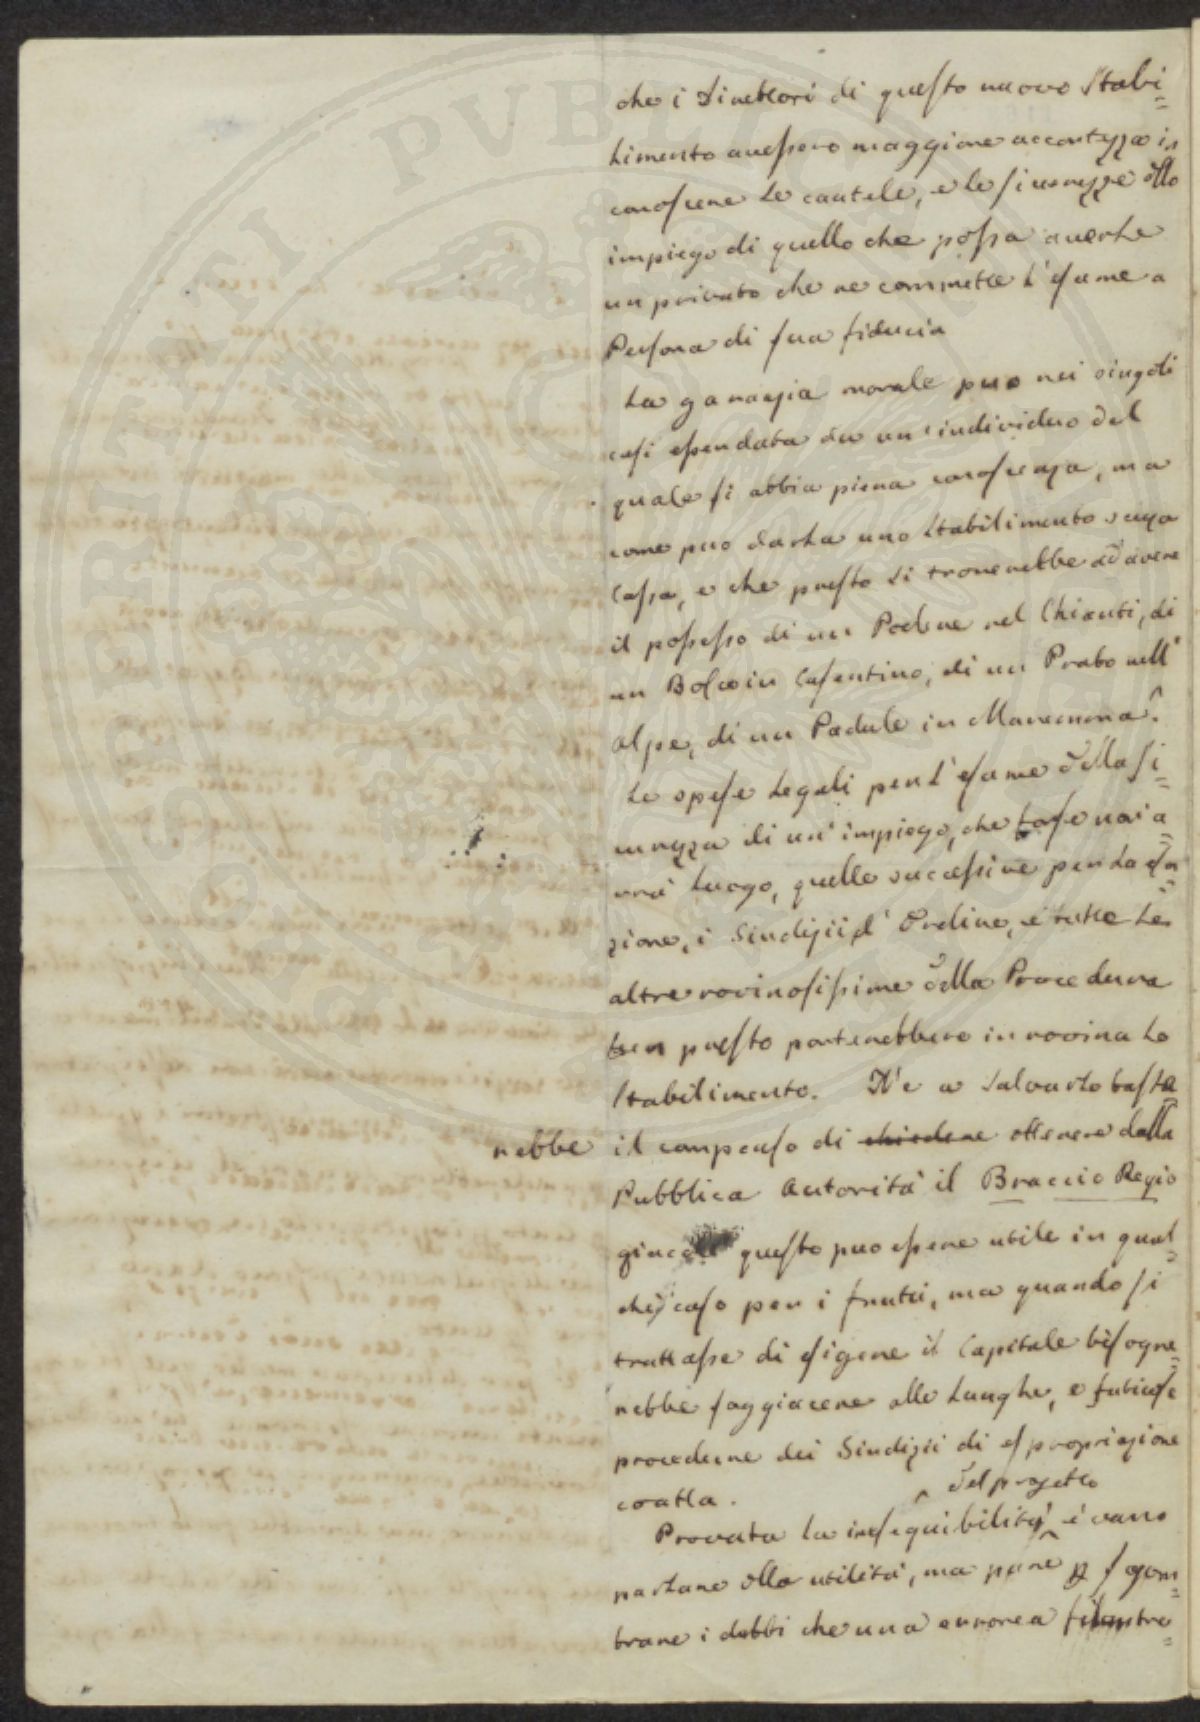 che i Direttori di questo nuovo Stabi=
limento avessero maggiore accortezza in
conoscere le cautele, e le sicurezze dello
impiego di quello che possa averle
un privato che ne commette l'esame a
Persona di sua fiducia
La garanzia morale può nei singoli
casi esser data da un'individuo del
quale si abbia piena conoscenza, ma
come può darla uno stabilimento senza
Cassa, e che presto si troverebbe ad avere
il possesso di un Podere nel Chianti, di
un Bosco in Casentino, di un Prato nell'
alpe, di un Padule in Maremma?
Le spese legali per l'esame della si=
curezza di un'impiego, che
avrà luogo, quelle successive per la esa=
zione, i Giudizii d'Ordine, e tutte le
altre rovinosissime della Procedura
ben presto porterebbero in rovina lo
Stabilimento. Ne a salvarlo basta
rebbe il compenso di chiedere ottenere dalla
Pubblica Autorità il Braccio Regio
giacchè questo può essere utile in qual=
che caso per i frutti, ma quando si
trattasse di esigere il Capitale bisogne=
rebbe soggiacere alle lunghe, e
procedure dei Giudizii di espropriazione
coatta.
del progetto
Provata la ineseguibilità è vano
parlare della utilità, ma pure per sgom=
brare i dubbi che una erronea